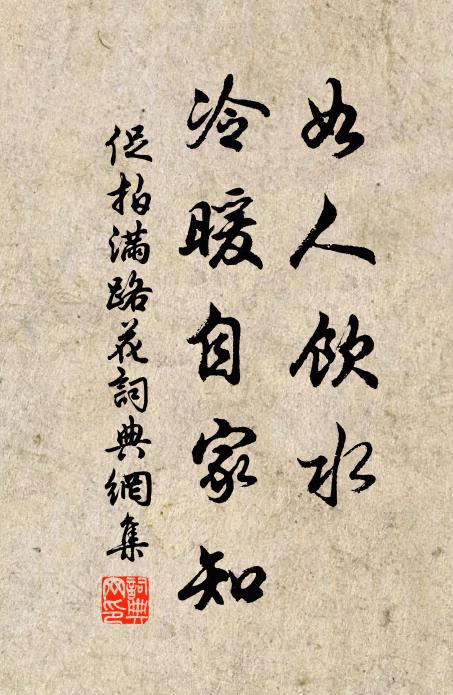 如人飲水
冷暖自家知
促拍滿路花詞典網集
詞典
网印